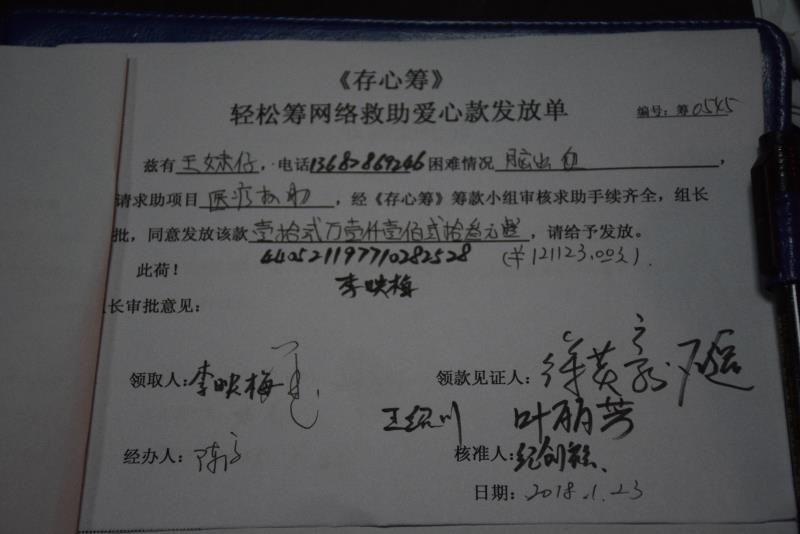 《存心筹》
轻松筹网络救助爱心款发放单
编号：筹0545
兹有王妹仔，电话13682869246困难情况脑出血，
请求助项目医疗救助，经《存心筹》筹款小组审核求助手续齐全，组长
批，同意发放该款壹拾贰万壹仟壹佰贰拾叁元整，请给予发放。
此荷！ 440521197710282528 （￥121123.00元）.
李映梅
长审批意见：
领取人：李映梅 领款见证人：
叶丽芳
经办人：陈 核准人：
日期：2018.1.23